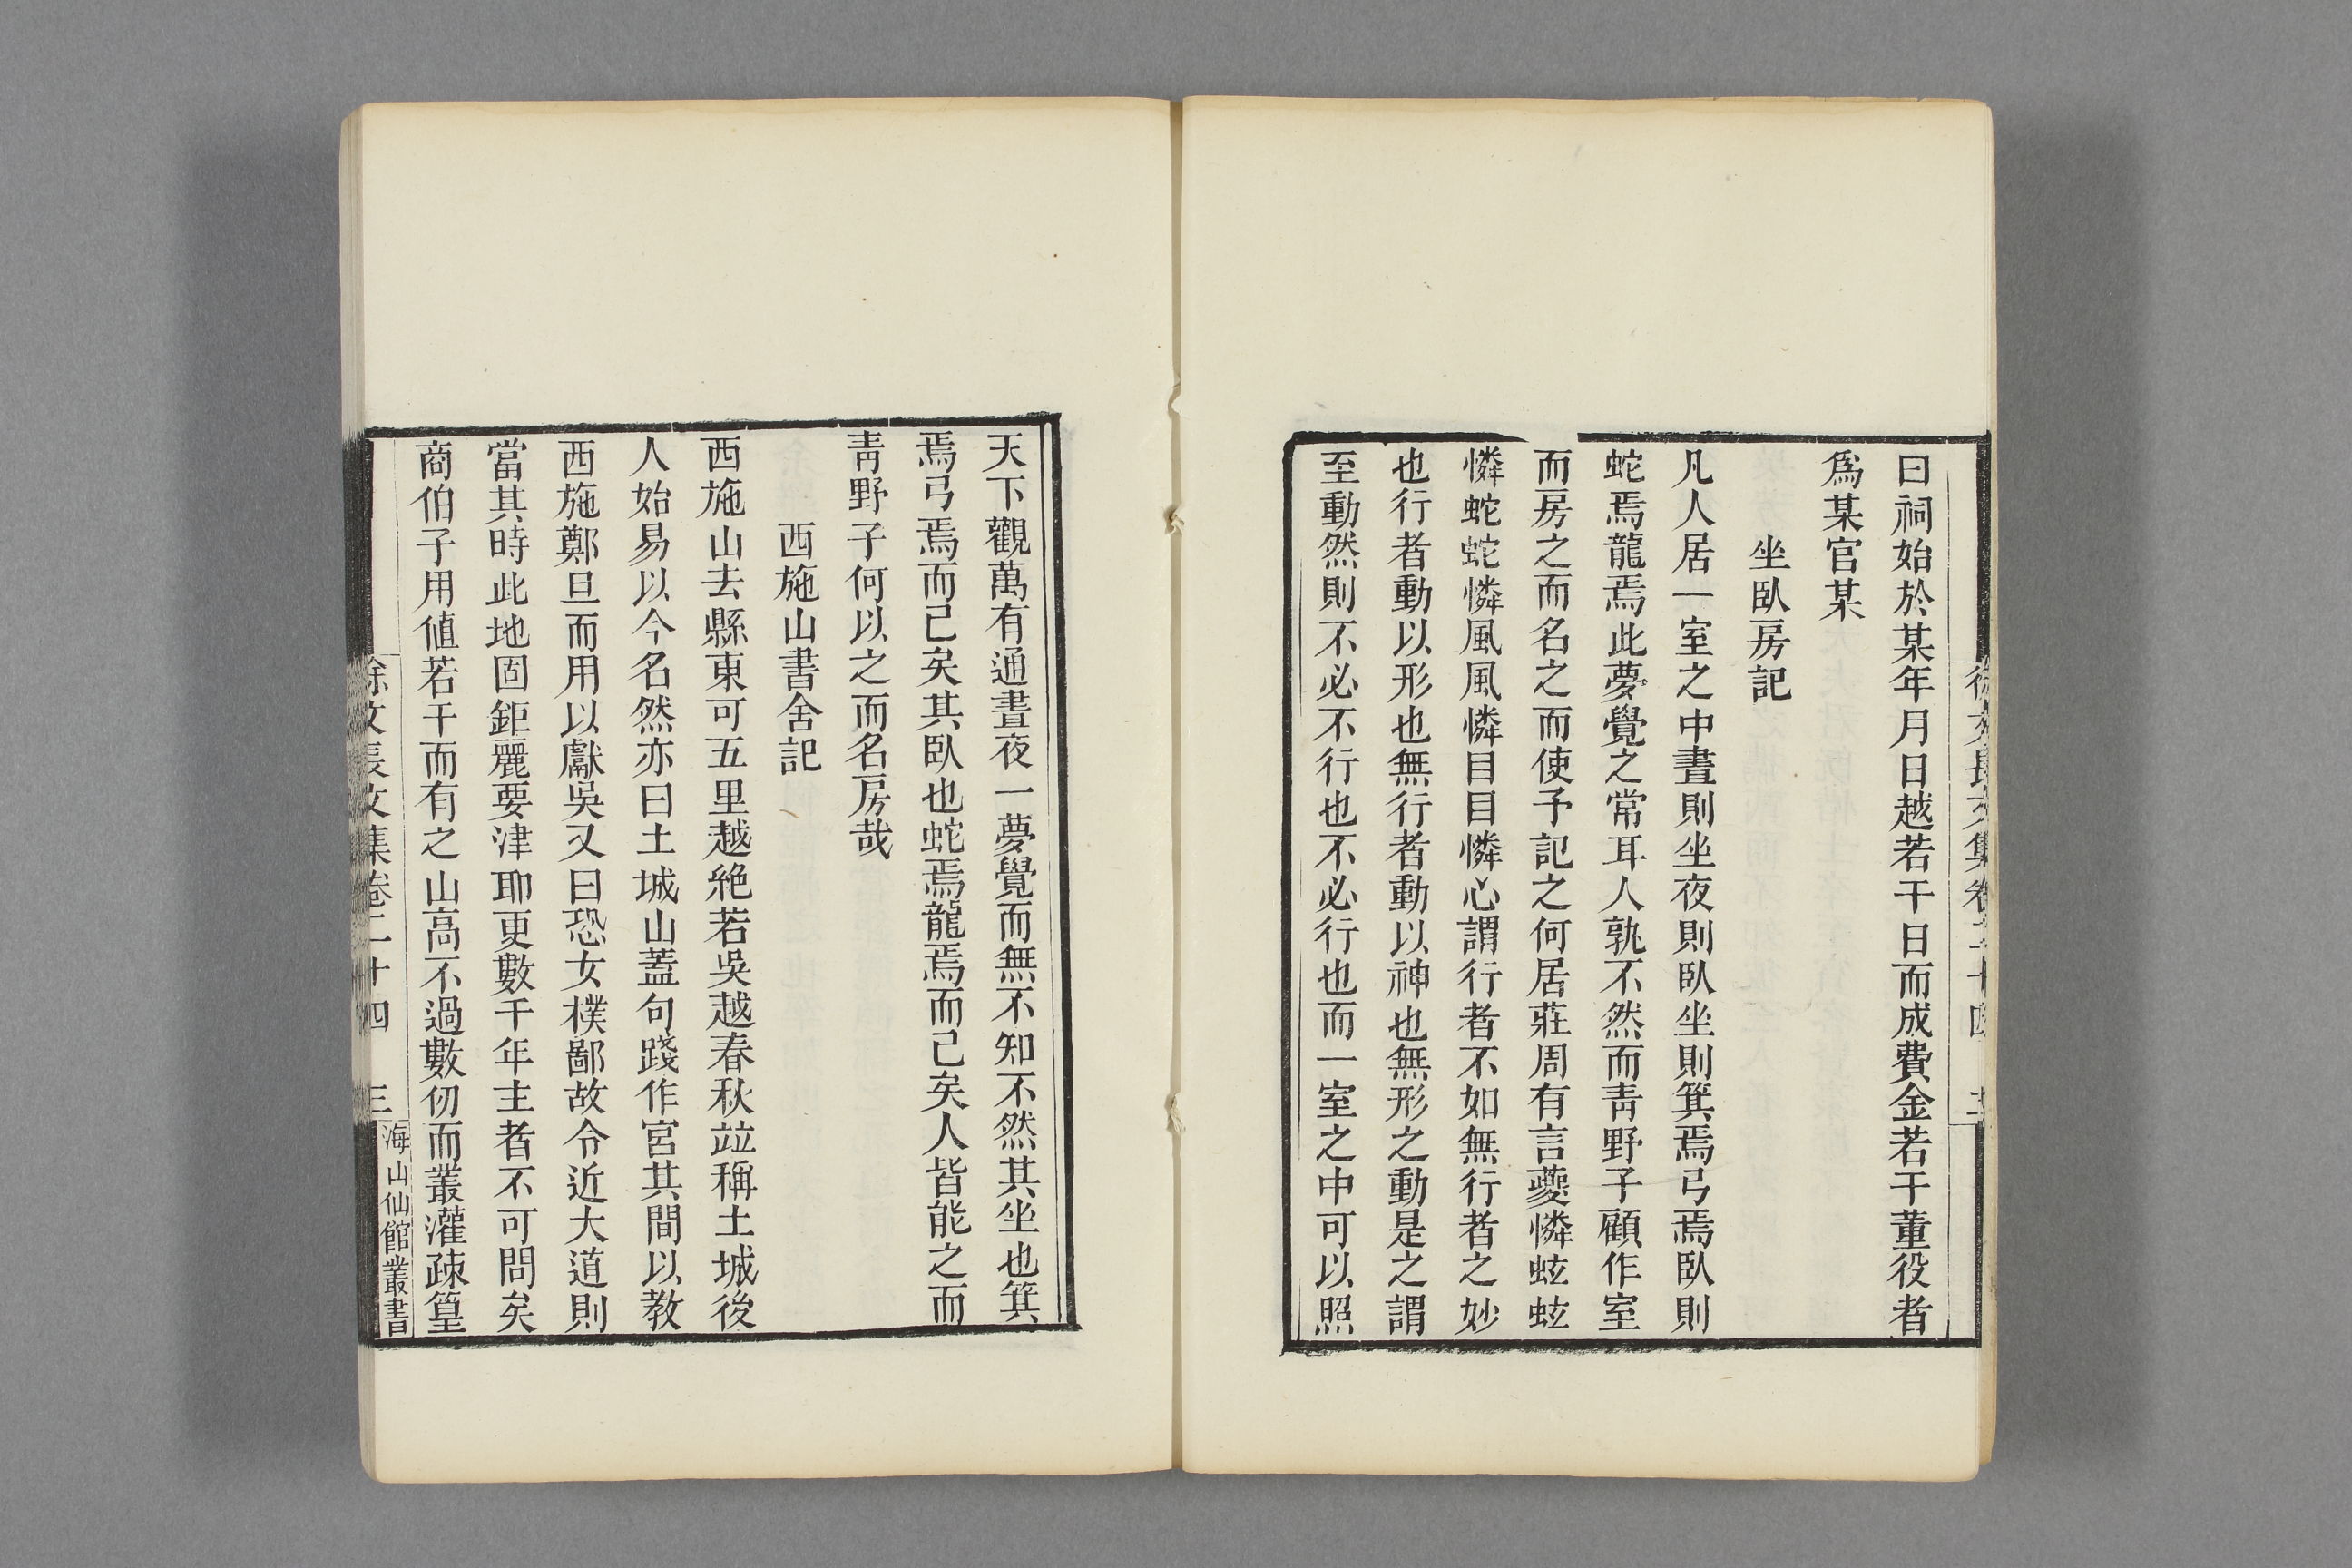 曰祠始於某年月日越若干日而成費金若干董役者
爲某官某
坐臥房記
凡人居一室之中晝則坐夜則臥坐則箕焉弓焉臥則
蛇焉龍焉此夢覺之常耳人孰不然而靑野子顧作室
而房之而名之而使予記之何居莊周有言夔憐蚿蚿
憐蛇蛇憐風風憐目目憐心謂行者不如無行者之妙
也行者動以形也無行者動以神也無形之動是之謂
至動然則不必不行也不必行也而一室之中可以照
天下觀萬有通晝夜一夢覺而無不知不然其坐也箕
焉弓焉而已矣其臥也蛇焉龍焉而已矣人皆能之而
靑野子何以之而名房哉
西施山書舍記
西施山去縣東可五里越絶若吳越春秋竝稱土城後
人始易以今名然亦曰土城山蓋句踐作宮其間以敎
西施鄭旦而用以獻吳又曰恐女樸鄙故令近大道則
當其時此地固鉅麗要津耶更數千年主者不可問矣
商伯子用値若干而有之山高不過數仞而叢灌疎篁
徐文長文集卷二十四 三
海山仙館叢書